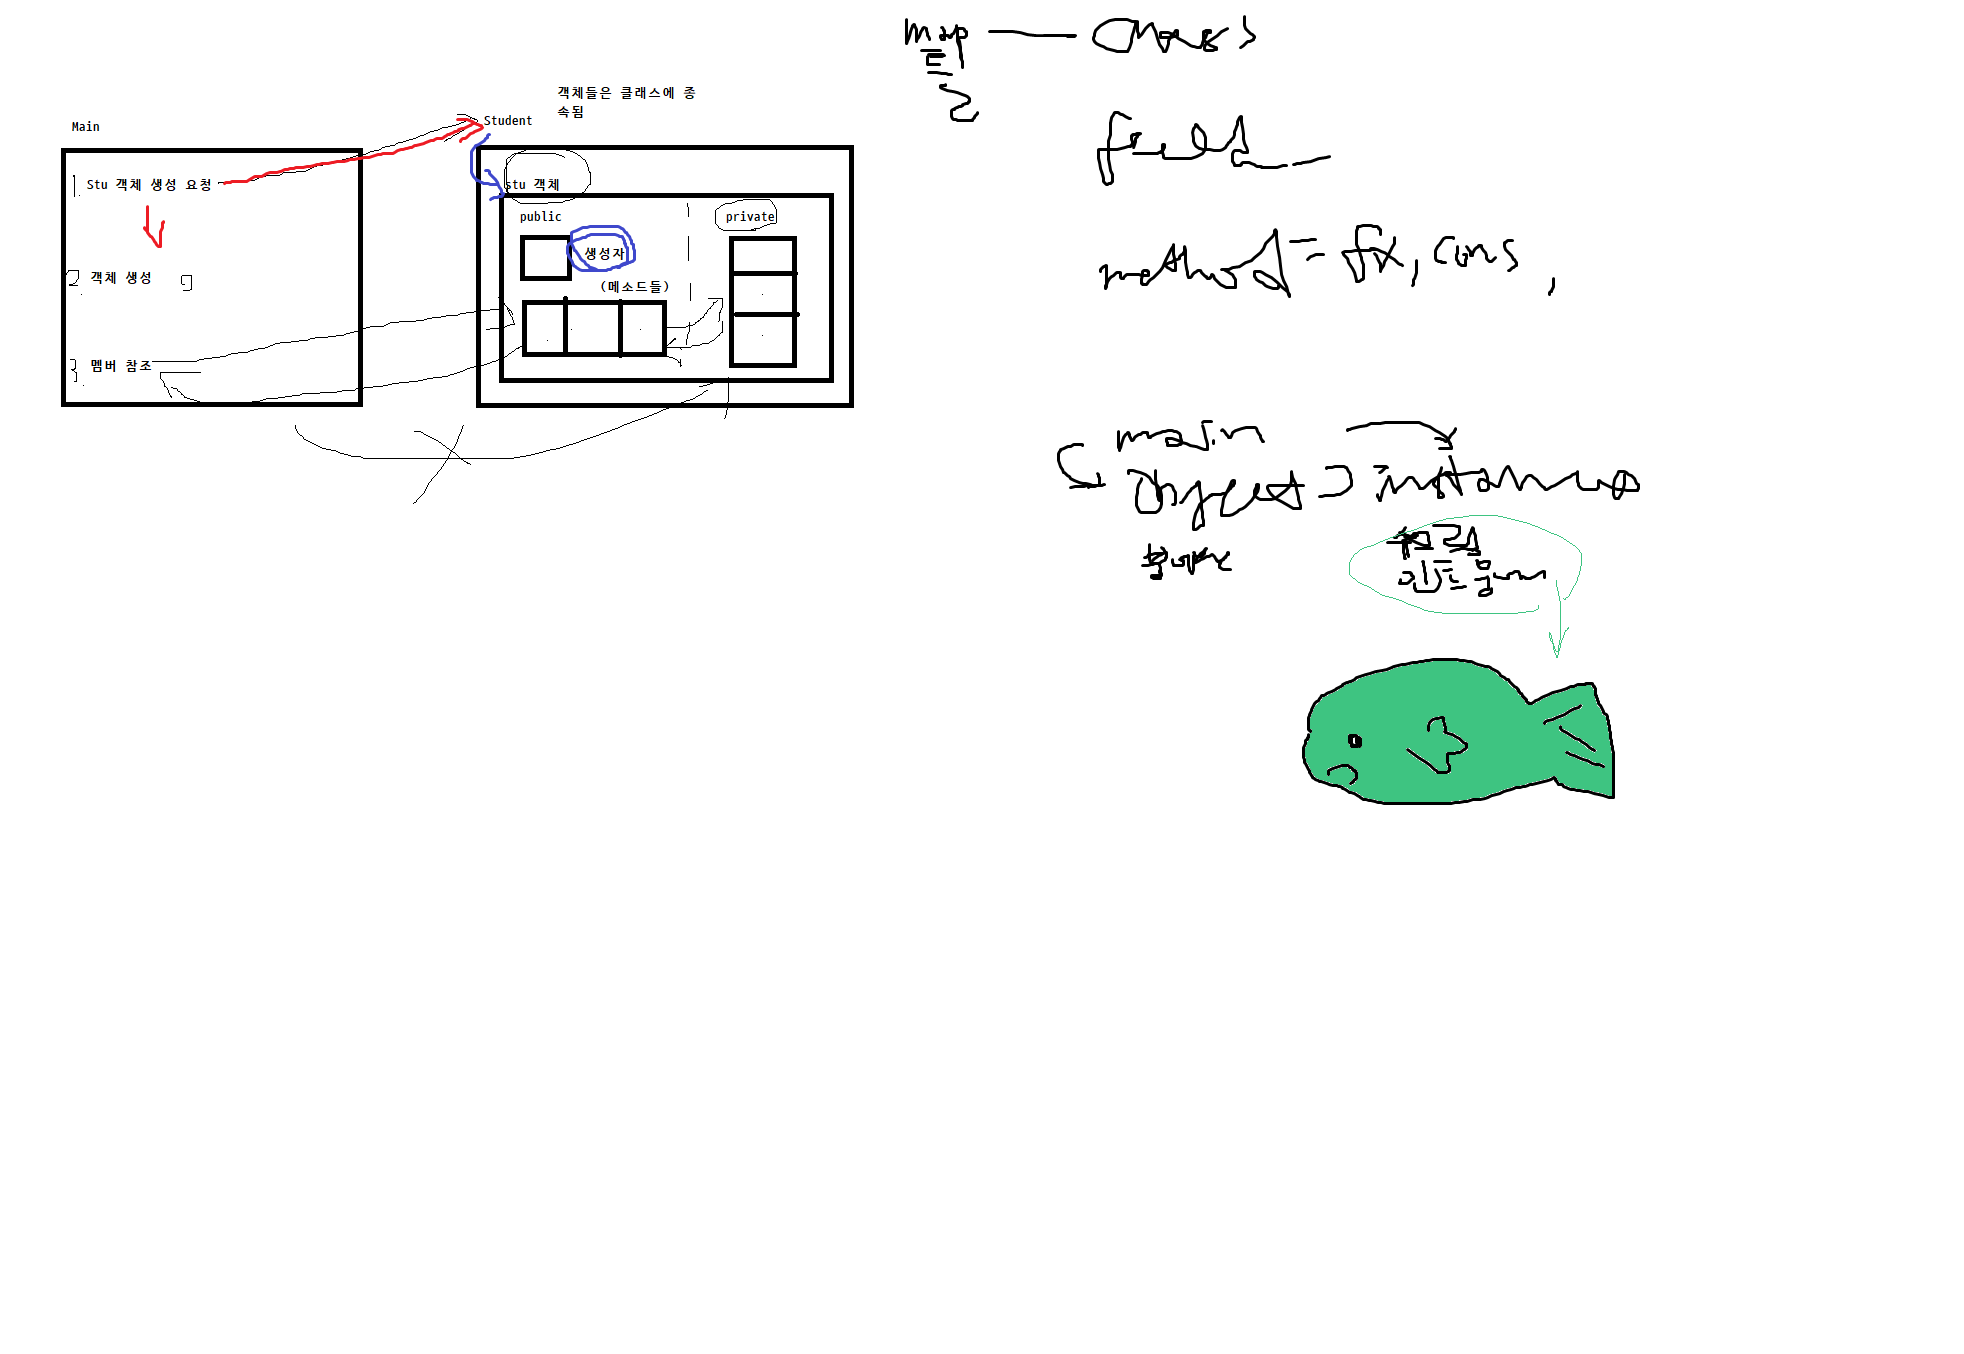 Main
1. Stu 객체 생성 요청
2. 객체 생성
3. 멤버 참조
객체들은 클래스에 종
속됨
Student
stu 객체
public
private
생성자
(메소드들)
map
틀
field
method = fx, cons,
main
object ⊃ instance